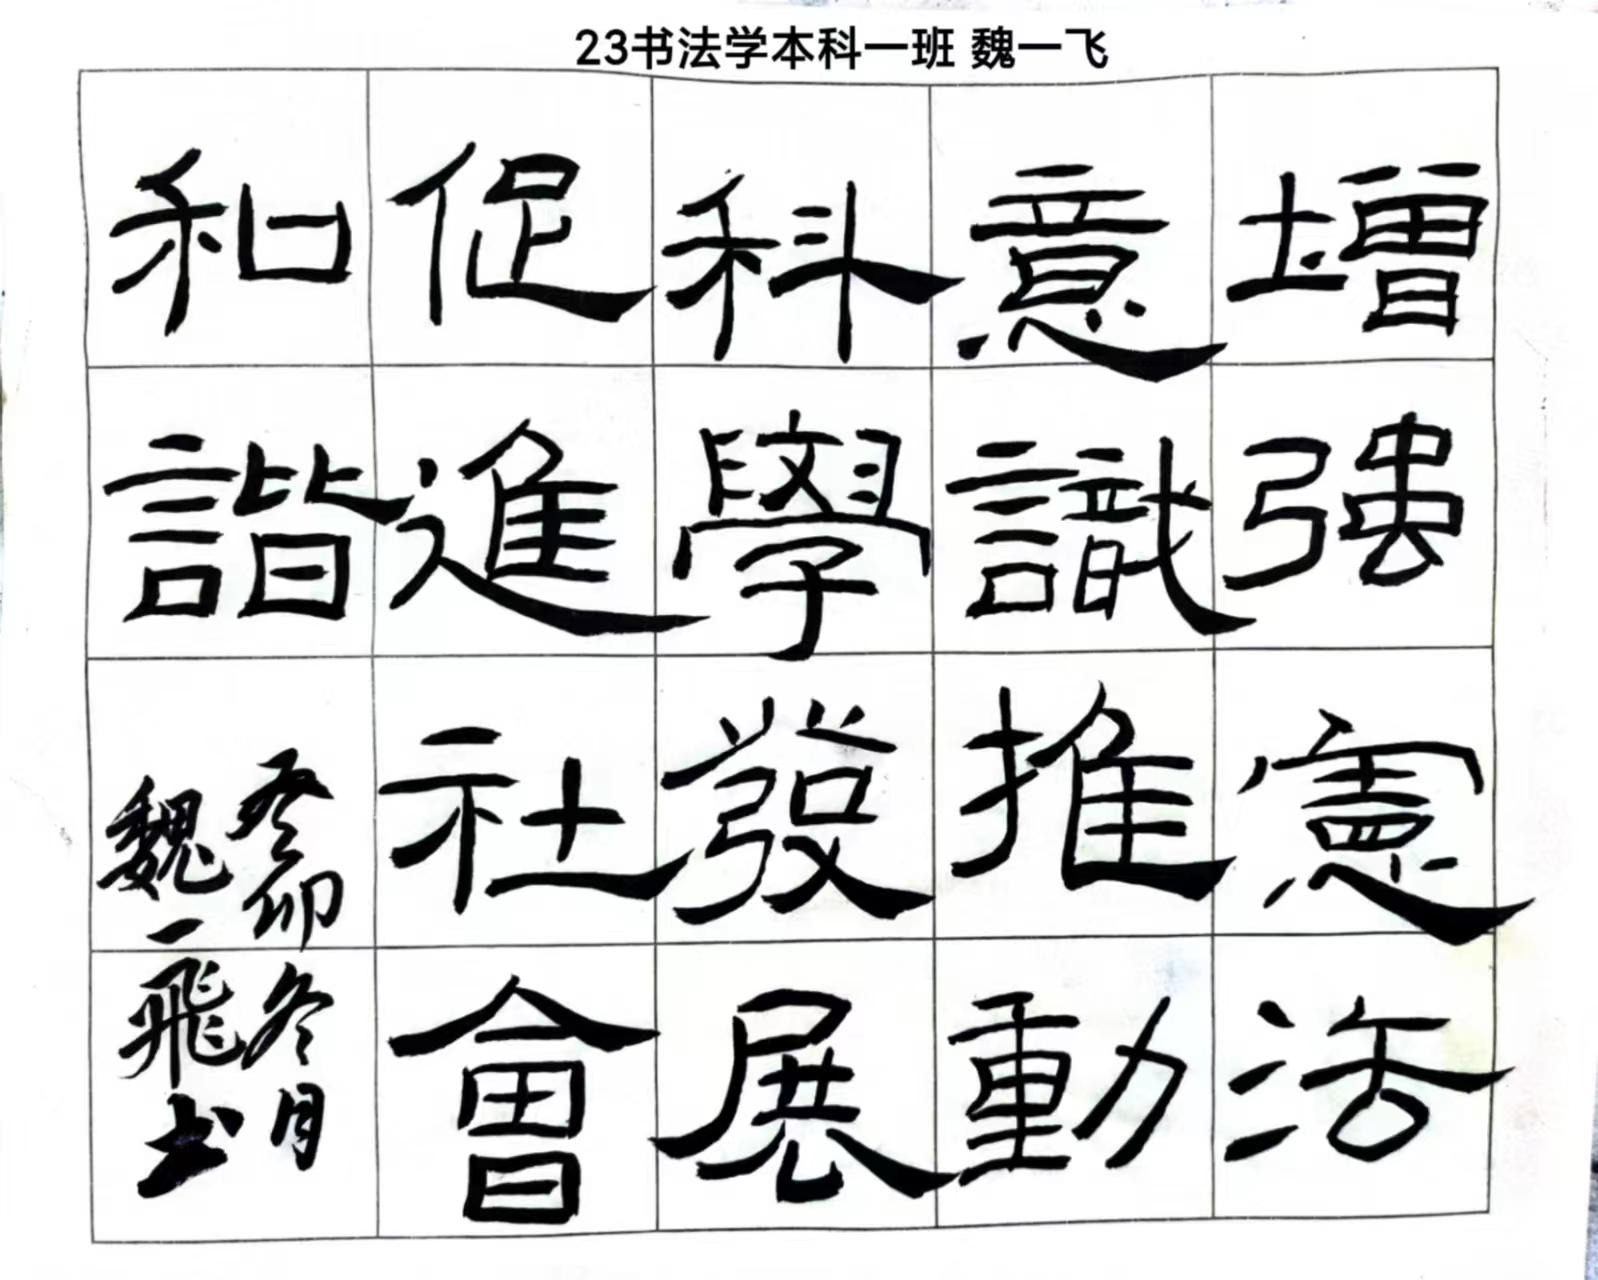 23书法学本科一班 魏一飞
增强憲法
意識推動
科學發展
促進社會
和諧
癸卯冬月
魏一飛书